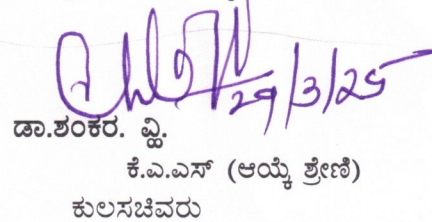 29/3/25
ಡಾ.ಶಂಕರ. ವ್ಹಿ.
ಕೆ.ಎ.ಎಸ್ (ಆಯ್ಕೆ ಶ್ರೇಣಿ)
ಕುಲಸಚಿವರು